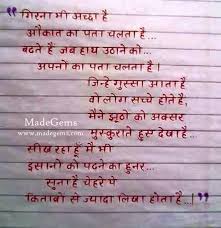 "गिरना भी अच्छा है
औकात का पता चलता है...
बढते हैं जब हाथ उठाने को...
अपनों का पता चलता है।
जिन्हे गुस्सा आता है
वो लोग सच्चे होते हैं,
मैंने झूठो को अक्सर
मुस्कुराते हुस देखा है...
सीख रहा हूँ मैं भी
इसानों को पढने का हुनर...
सुना है चेहरे पे
किताबों से ज्यादा लिखा होता है..।"
MadeGems
www.madegems.com